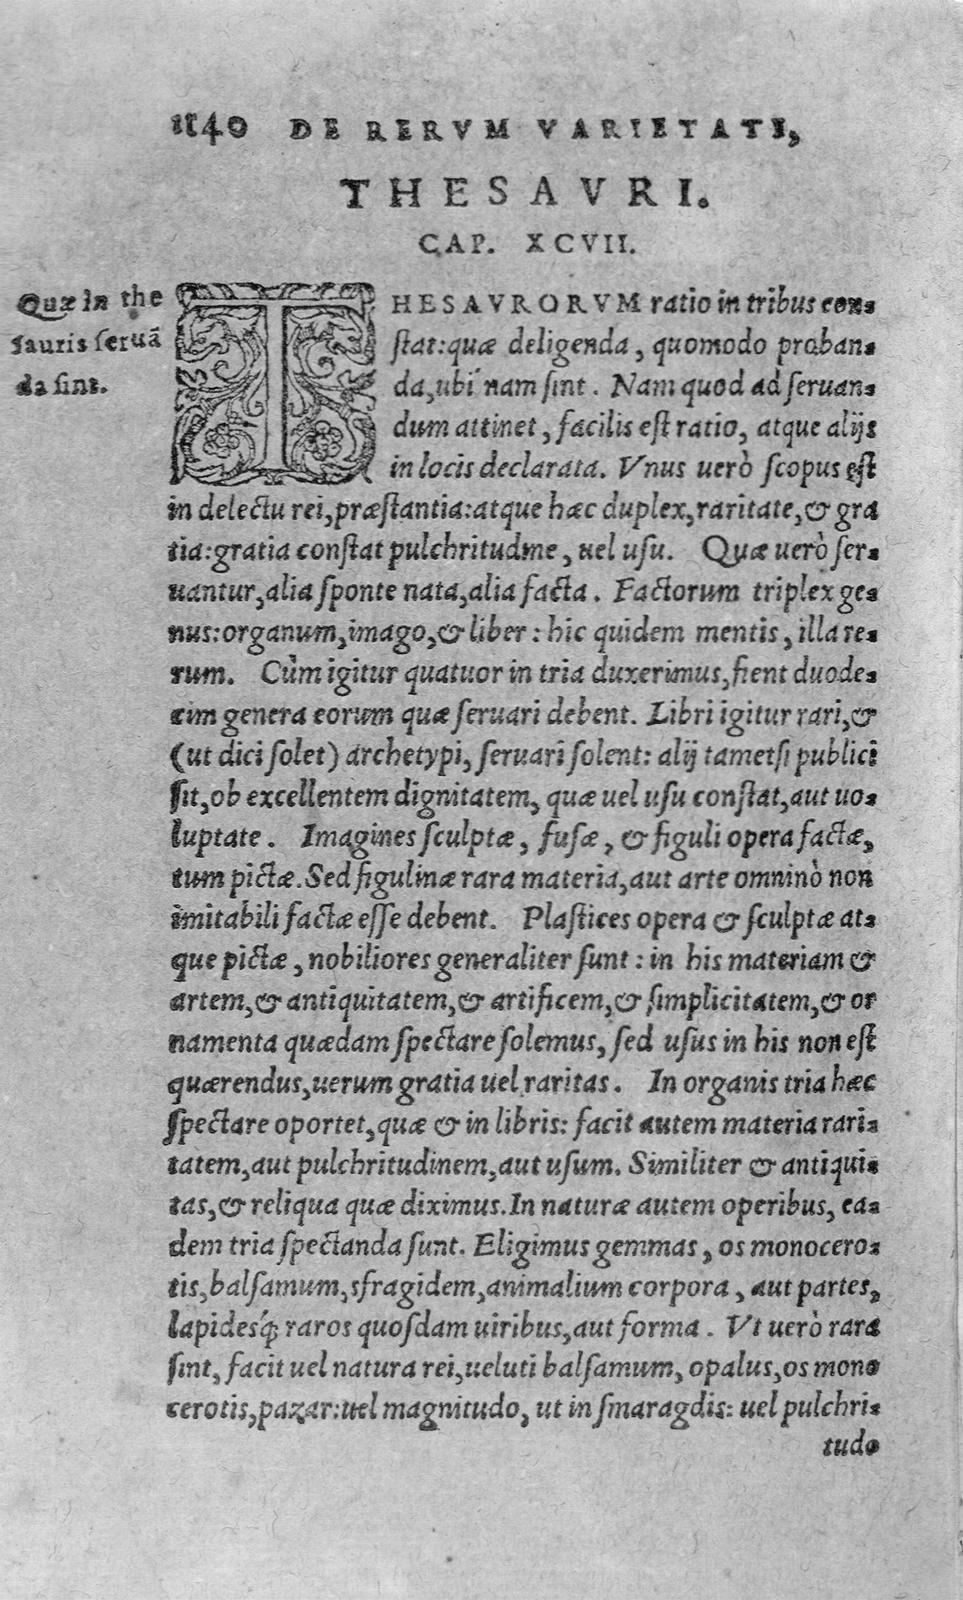 1140 DE RERVM VARIETATE,
THESAVRI.
CAP. XCVII.
Quæ in the
sauris seruã
da sint.
THESAVRORVM ratio in tribus con-
stat: quæ deligenda, quomodo proban-
da, ubi nam sint. Nam quod ad seruan-
dum attinet, facilis est ratio, atque alijs
in locis declarata. Vnus uerò scopus est
in delectu rei, præstantia: atque hæc duplex, raritate, & gra
tia: gratia constat pulchritudine, uel usu. Quæ uerò ser-
uantur, alia sponte nata, alia facta. Factorum triplex ge-
nus: organum, imago, & liber: hic quidem mentis, illa re-
rum. Cùm igitur quatuor in tria duxerimus, fient duode-
cim genera eorum quæ seruari debent. Libri igitur rari, &
(ut dici solet) archetypi, seruari solent: alij tametsi publici
sit, ob excellentem dignitatem, quæ uel usu constat, aut uo-
luptate. Imagines sculptæ, fusæ, & figuli opera factæ,
tum pictæ. Sed figulinæ rara materia, aut arte omninò non
imitabili factæ esse debent. Plastices opera & sculptæ at-
que pictæ, nobiliores generaliter sunt: in his materiam &
artem, & antiquitatem, & artificem, & simplicitatem, & or
namenta quædam spectare solemus, sed usus in his non est
quærendus, uerum gratia uel raritas. In organis tria hæc
spectare oportet, quæ & in libris: facit autem materia rari-
tatem, aut pulchritudinem, aut usum. Similiter & antiqui-
tas, & reliqua quæ diximus. In naturæ autem operibus, ea-
dem tria spectanda sunt. Eligimus gemmas, os monocero-
tis, balsamum, sfragidem, animalium corpora, aut partes,
lapidesq́; raros quosdam uiribus, aut forma. Vt uerò rara
sint, facit uel natura rei, ueluti balsamum, opalus, os mono
cerotis, pazar: uel magnitudo, ut in smaragdis: uel pulchri-
tudo